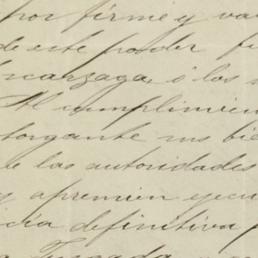 por firme y va
de este poder fu
scarzaga, ó los s
Al cumplimien
otorgante sus bie
de las autoridades
y apremien ejecu
cia definitiva p
Juzgada